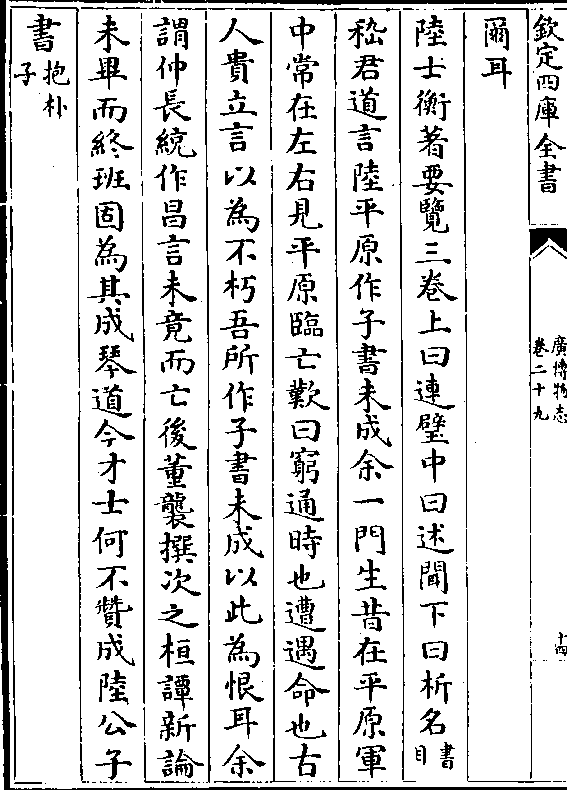 欽定四庫全書
廣博物志
卷二十九
十四
爾耳
陸士衡著要覽三卷上曰連璧中曰述聞下曰析名書目
嵇君道言陸平原作子書未成余一門生昔在平原軍
中常在左右見平原臨亡歎曰窮通時也遭遇命也古
人貴立言以為不朽吾所作子書未成以此為恨耳余
謂仲長統作昌言未竟而亡後董襲撰次之桓譚新論
未畢而終班固為其成琴道今才士何不贊成陸公子
書抱朴子